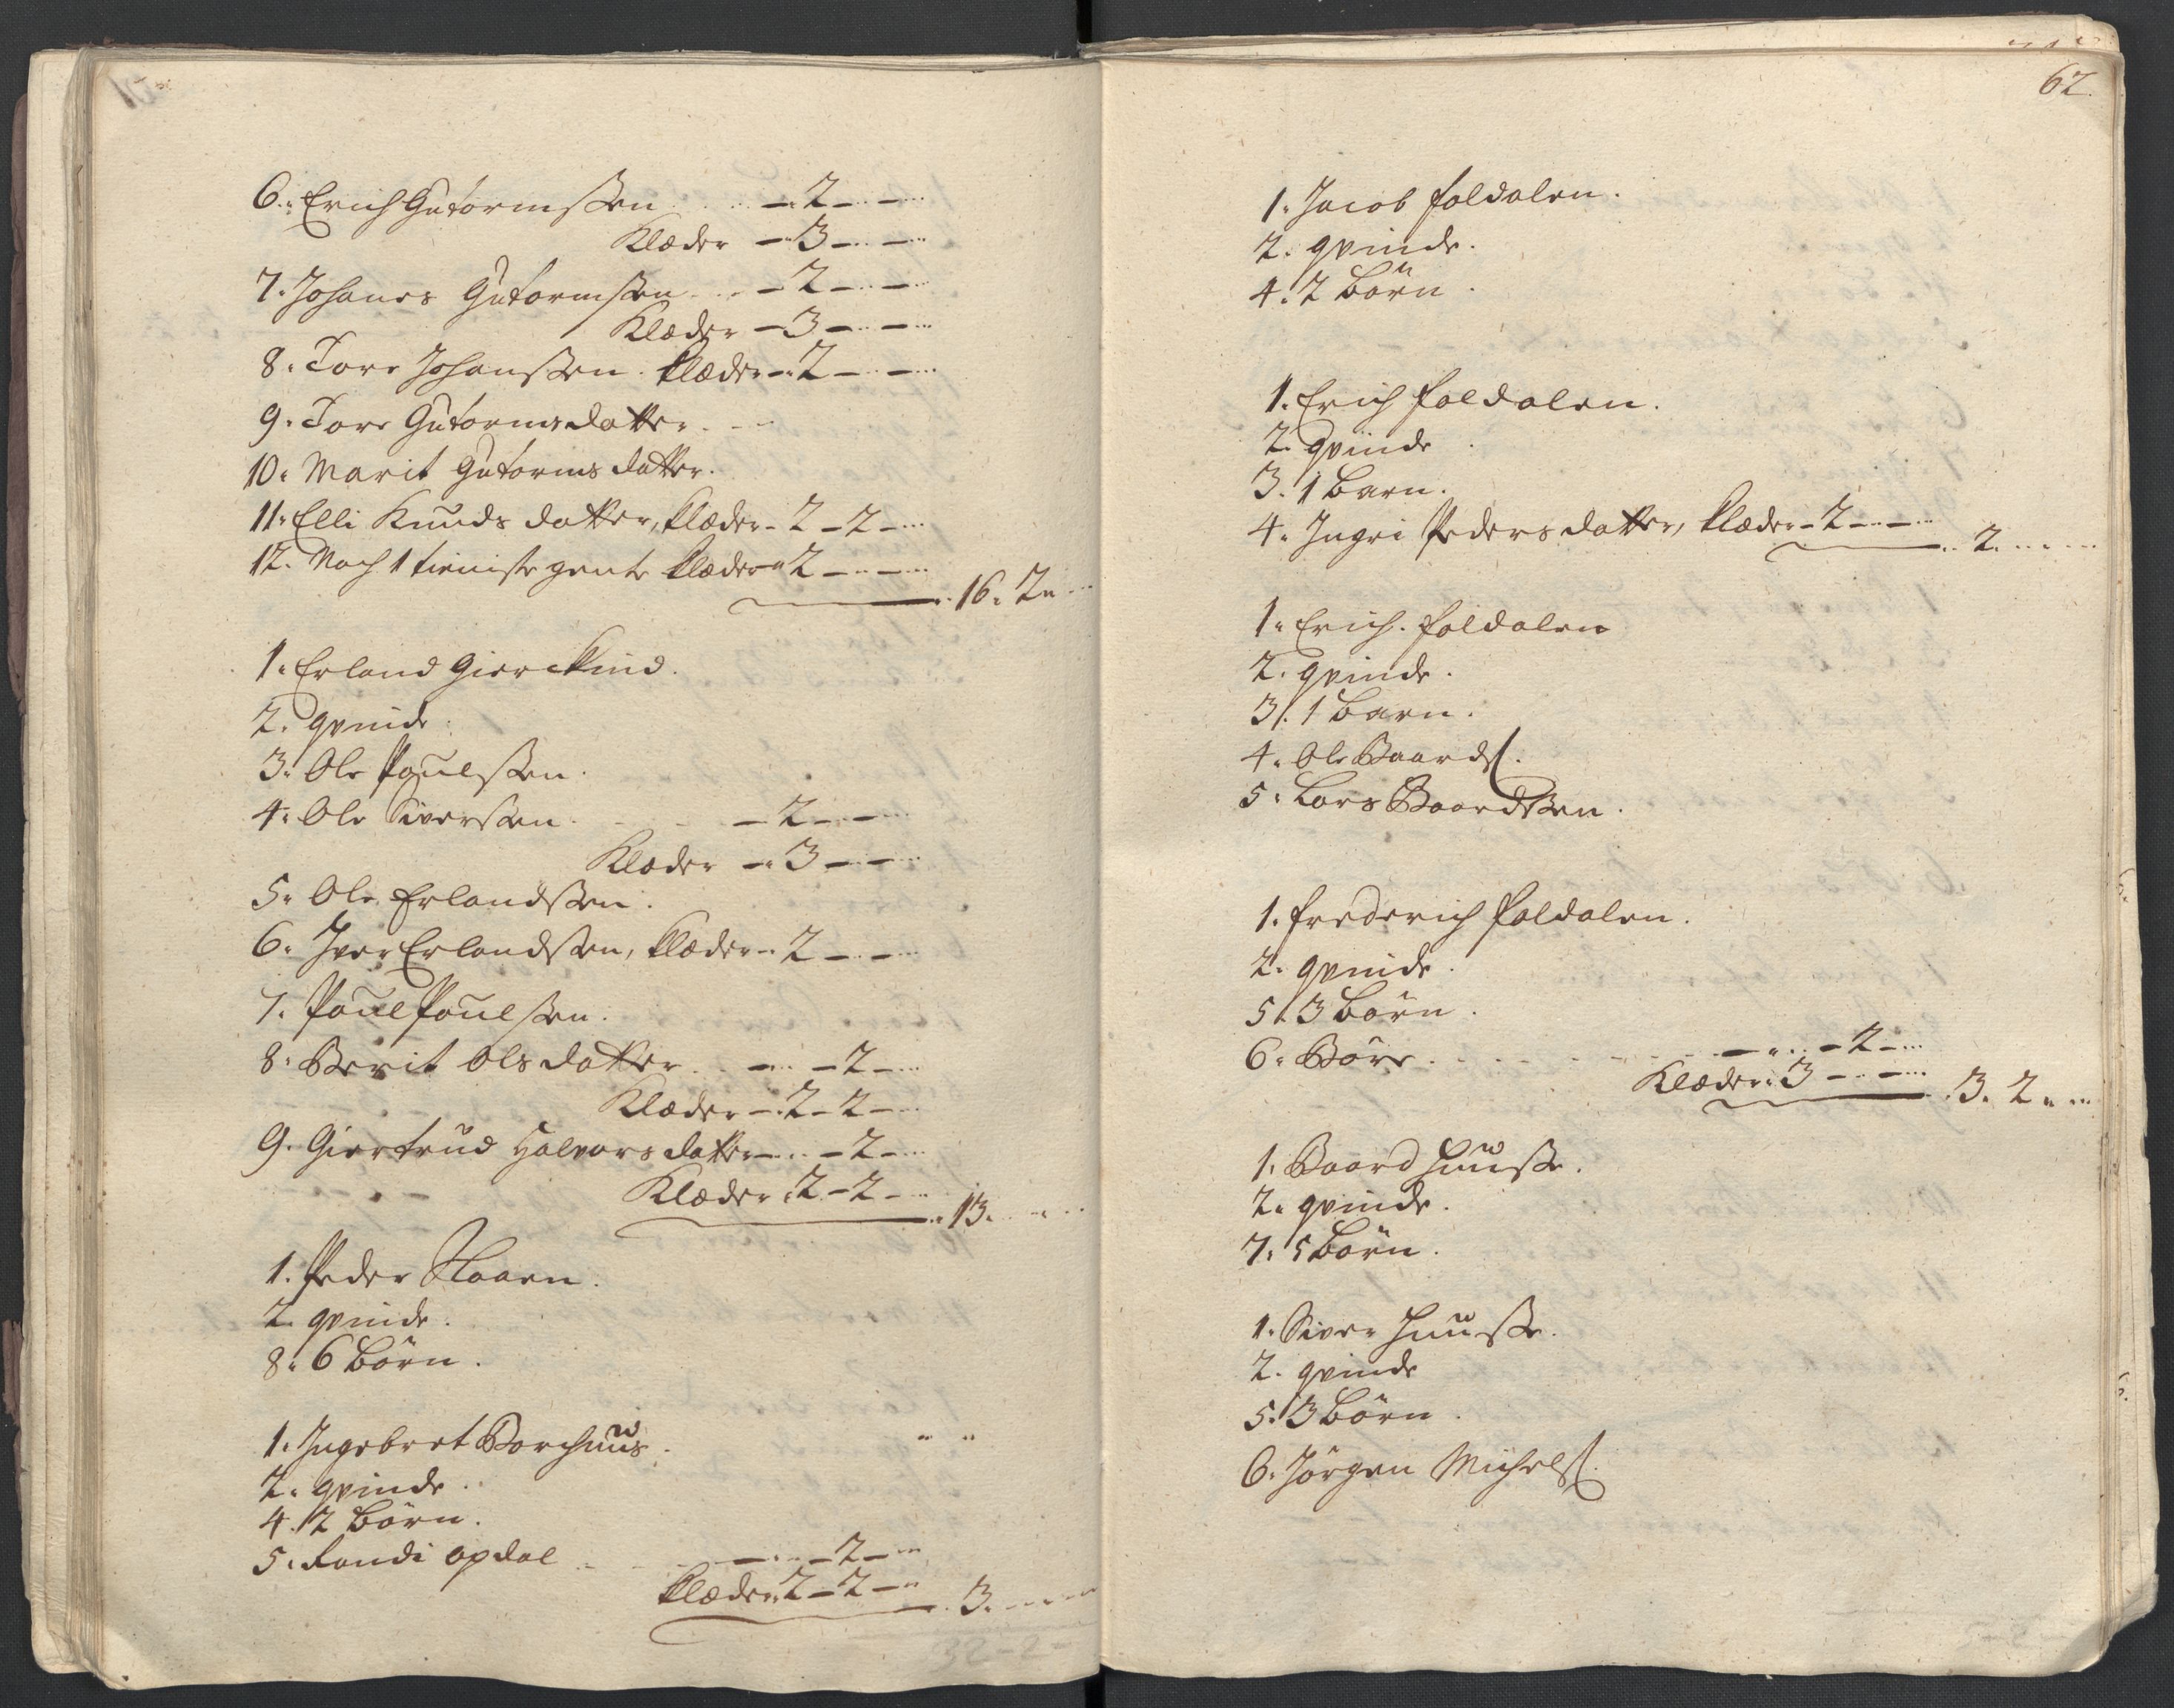 6. Erich Gutormsßen - 2 - -
Klæder - 3 - -
7. Johanes Gutormsßen - 2 - -
Klæder - 3 - -
8. Tore Johansßen. Klæder - 2 - -
9. Tore Gutormsdatter.
10. Marit Gutorms datter.
11. Elli Knuds datter, Klæder - 2 - 2 -
12. Noch 1 tieniste gente Klæder 2 - -
16. 2.
1. Erland Gierckind.
2. qvinde.
3. Ole Poulsßen.
4. Ole Siversßen - 2 - -
Klæder - 3 - -
5. Ole Erlandsßen.
6. Iver Erlandsßen, Klæder - 2 - -
7. Poul Poulsßen.
8. Berit Olsdatter - - 2 -
Klæder - 2 - 2 -
9. Giertrud Halvorsdatter - - 2 -
Klæder. 2 - 2 -
13.
1. Peder
2. qvinde.
8. 6 börn.
1. Ingebret Borchuus.
2. qvinde.
4. 2 börn.
5. Randi Opdal - - 2 -
Klæder. 2 - 2 -
3.
32-2-
62.
1. Jacob foldalen.
2. qvinde.
4. 2 börn.
1. Erich foldalen.
2. qvinde
3. 1 barn.
4. Ingri Pedersdatter, Klæder - 2 - -
2.
1. Erich. foldalen
2. qvinde.
3. 1 barn.
4. Ole Baards.
5. Lars Baardsßen.
1. frederich foldalen.
2. qvinde.
5. 3 börn.
6. Börre - - 2 -
Klæder. 3 - -
3. 2.
1. Baard Huusße.
2. qvinde.
7. 5 börn.
1. Siver Huusße.
2. qvinde
5. 3 börn.
6. Jörgen Michels.